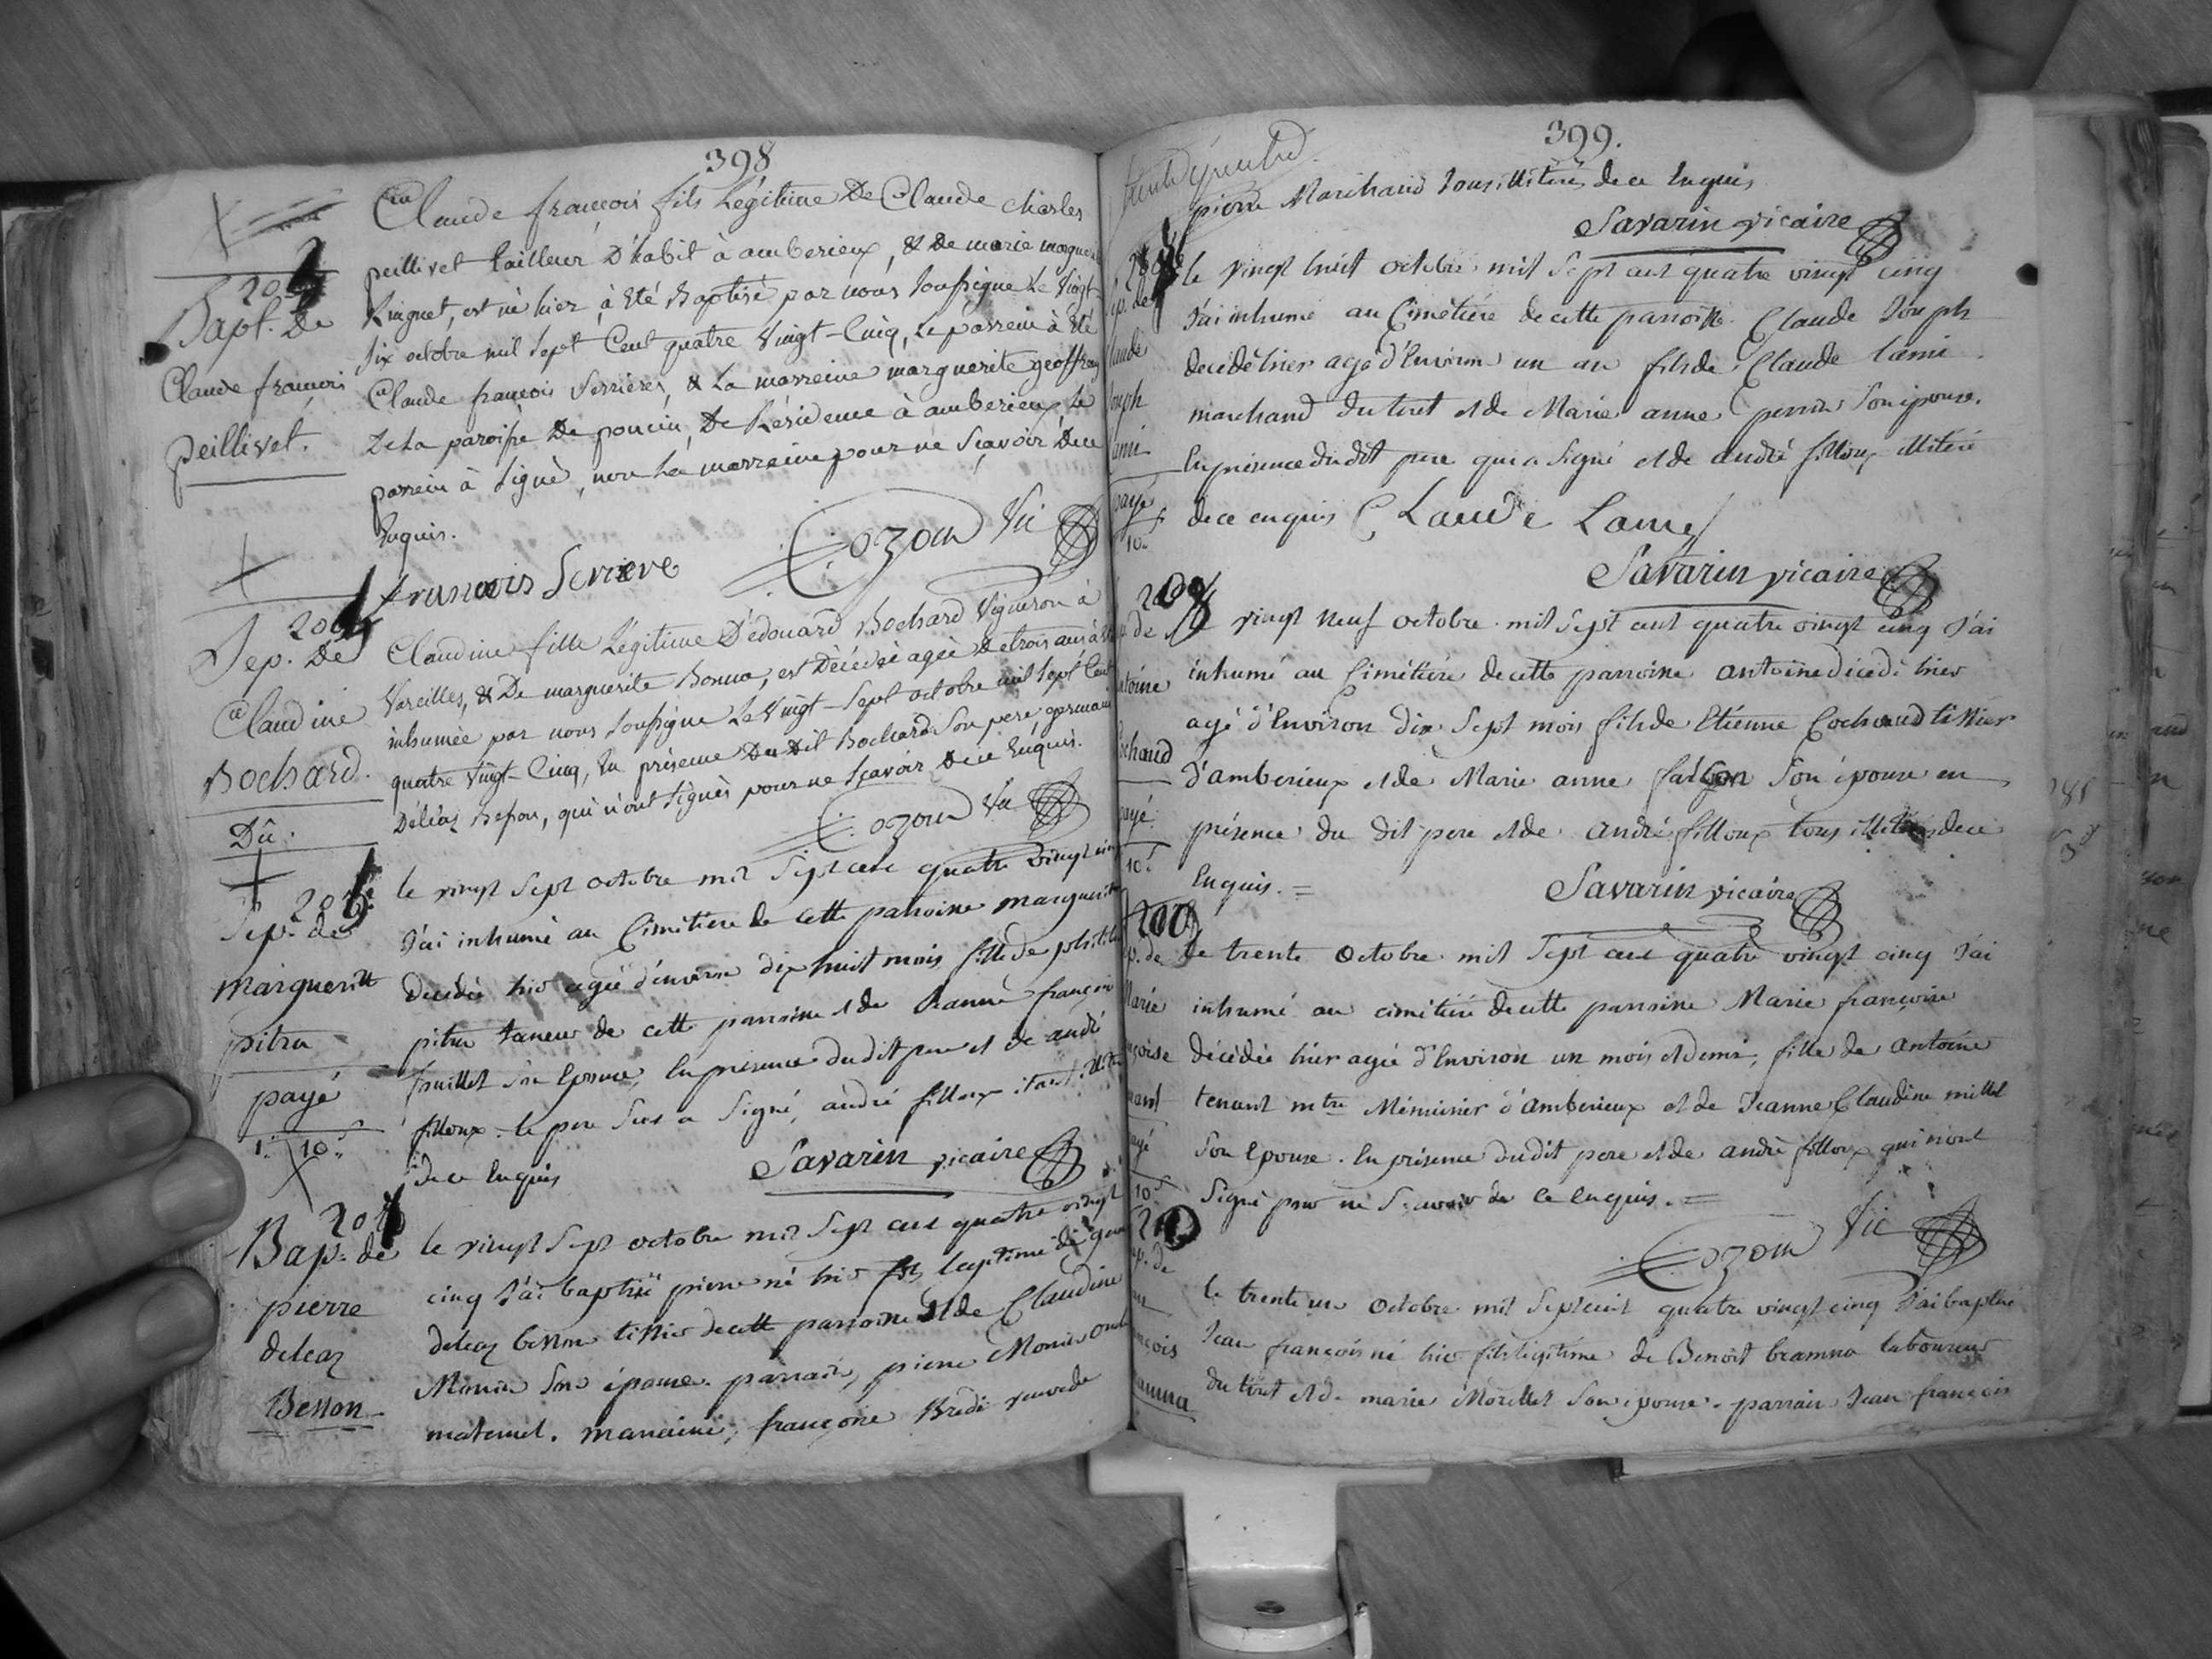 398
Claude françois fils Légitime De Claude charles
peillivet tailleur D'habit à amberieux, & De marie
Ringuet, est né hier, à été Baptisé par nous soussigné Le Vingt-
six octobre mil sept Cent quatre Vingt-Cinq, Le parrein à été
Claude francois Serrieres, & La marreine marguerite geoffray
De La paroisse De poncin, De Résidence à amberieux, Le
parrein à Signé, non La marreine pour ne sçavoir De ce
Enquis.
francois Serrieve
Cozon Vic
Bapt. De
Claude françois
peillivet.
Claudine fille Légitime D'édouard Bochard Vigneron à
Vareilles, & De marguerite Bonna, est Décédée agée de trois ans à été
inhumée par nous soussigné Le Vingt-Sept octobre mil sept Cent
quatre Vingt-Cinq, En présence Du Dit Bochard Son pere, germain
Déléaz Besson, qui n'ont Signés pour ne sçavoir De ce Enquis.
Cozon Vic
Sep. De
Claudine
Bochard.
Dû.
le vingt sept octobre mil sept cent quatre vingt cinq
J'ai inhumé au Cimitiere de cette parroisse marguerite
decédée hier agée d'environ dix huit mois fille de
pitra taneur de cette parroisse et de Jeanne françoise
son Epouse, En présence du dit pere et de andré
filloux. le pere seul a Signé, andré filloux étant
de ce Enquis
Savarin vicaire
Sep. de
marguerite
pitra
payé
1. 10.
le vingt sept octobre mil sept cent quatre vingt
cinq J'ai baptisé pierre né hier fils legitime de
deleaz besson tissier de cette parroisse et de Claudine
Monin son épouse. parrain, pierre Monin oncle
maternel. marraine, françoise
Bap. de
pierre
deleaz
Besson
399.
pierre Marchand tous illiterés de ce Enquis
Savarin vicaire
le vingt huit octobre mil sept cent quatre vingt cinq
J'ai inhumé au Cimetiere de cette parroisse Claude Joseph
decédé hier agé d'Environ un an fils de Claude Lami
marchand du tiret et de Marie anne perrin son épouse.
En présence du dit pere qui a Signé et de andré filloux illiteré
de ce enquis Claude Lamy
Savarin vicaire
le vingt neuf octobre mil sept cent quatre vingt cinq J'ai
inhumé au Cimétiere de cette parroisse antoine décédé hier
agé d'Environ dix sept mois fils de Etienne Cochaud tissier
d'amberieux et de Marie anne son épouse en
présence du dit pere et de andré filloux tous illiterés de ce
Enquis. =
Savarin vicaire
le trente octobre mil sept cent quatre vingt cinq J'ai
inhumé au cimétiere de cette parroisse Marie françoise
décédée hier agée d'Environ un mois et demi, fille de antoine
tenant mtre Menuisier d'amberieux et de Jeanne Claudine millet
son Epouse. En présence du dit pere et de andré filloux qui n'ont
Signé pour ne Sçavoir de ce enquis. =
Cozon Vic
le trente un octobre mil sept cent quatre vingt cinq J'ai baptisé
Jean françois né hier fils légitime de Benoît bramna laboureur
du tiret et de marie Morellet son épouse. parrain Jean françois